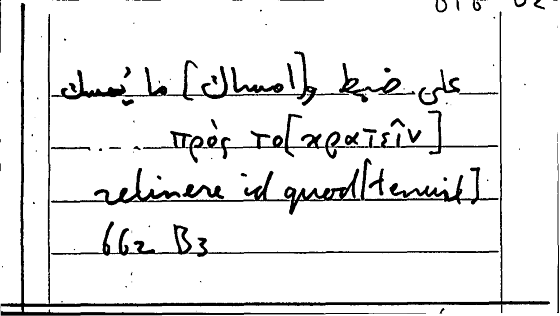 على ضبط و[امساك] ما يُمسك
—.— πρὸς το[κρατεῖν]
retinere id quod[tenuit]
662 B3